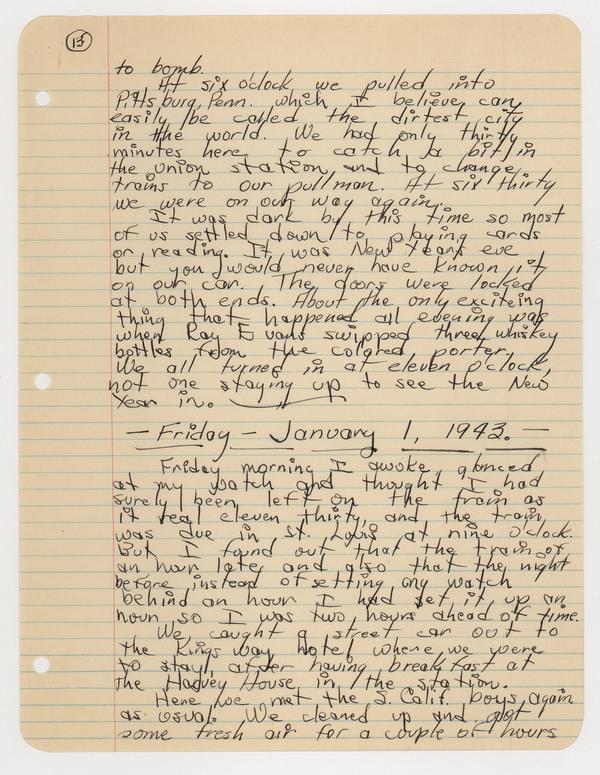 13
to bomb.
At six o'clock, we pulled into
Pittsburg, Penn. which, I believe can,
easily be called the dirtest city
in the world. We had only thirty
minutes here to catch a bit in
the union station, and to change
trains to our pullman. At six thirty
we were on our way again.
It was dark by this time so most
of us settled down to playing cards
or reading. It was New Years eve
but you would never have known it
on our car. The doors were locked
at both ends. About the only exciteing
thing that happened all evening was
when Ray Evans swipped three whiskey
bottles from the colored porter.
We all turned in at eleven o'clock,
not one staying up to see the New
Year in.
— Friday — January 1, 1943. —
Friday morning I awoke, glanced
at my watch and thought I had
surely been left on the train as
it read eleven thirty, and the train
was due in St. Louis at nine o'clock.
But I found out that the train of
an hour late, and also that the night
before instead of setting my watch
behind an hour I had set it up an
hour, so I was two hours ahead of time.
We caught a street car out to
the Kings way hotel where we were
to stay, after having breakfast at
the Harvey House in the station.
Here we met the S. Calif. boys again
as usual. We cleaned up and got
some fresh air for a couple of hours